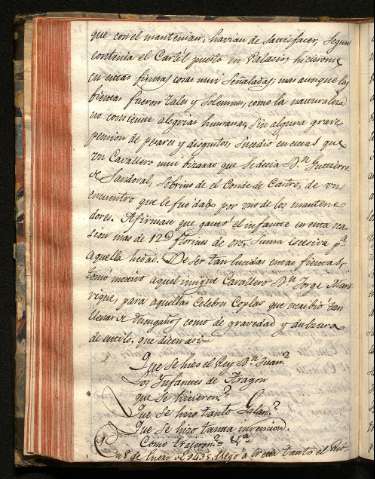 que con el mantenian, havian de satisfacer, segun
contenia el Cartel puesto in Palacio; hicieronse
en estas fiestas cosas mui señaladas; mas aunque las
fiestas fueron tales y solemnes, como la naturaleza
no consiente alegrias humanas, sin alguna grave
pension de pesares y disgustos; sucedio en estas que
un Cavallero mui bizarro que se decia Dn. Gutierre
de Sandoval, sobrino de el Conde de Castro, de un
encuentro que le fue dado por uno de los mantene
dores. Afirman que gastó el infante en esta oca
sion mas de 12@ florines de oro, suma excesiva pa.
aquella hedad. De ser tan lucidas estas fiestas,
tomo motivo aquel insigne Cavallero Dn. Jorge Manr
rique, para aquellas Celebres Coplas que escribió tan
llenas de como de gravedad y
de estilo, que dicen asi
Que se hizo el Rey Dn. Juan?
Los Infantes de Aragon
que se hicieron?
Que se hizo tanto Galan?
Que se hizo tanta invencion.
Como trajeron? &a.
8 de Enero de 1435. llegó a tanto el frio